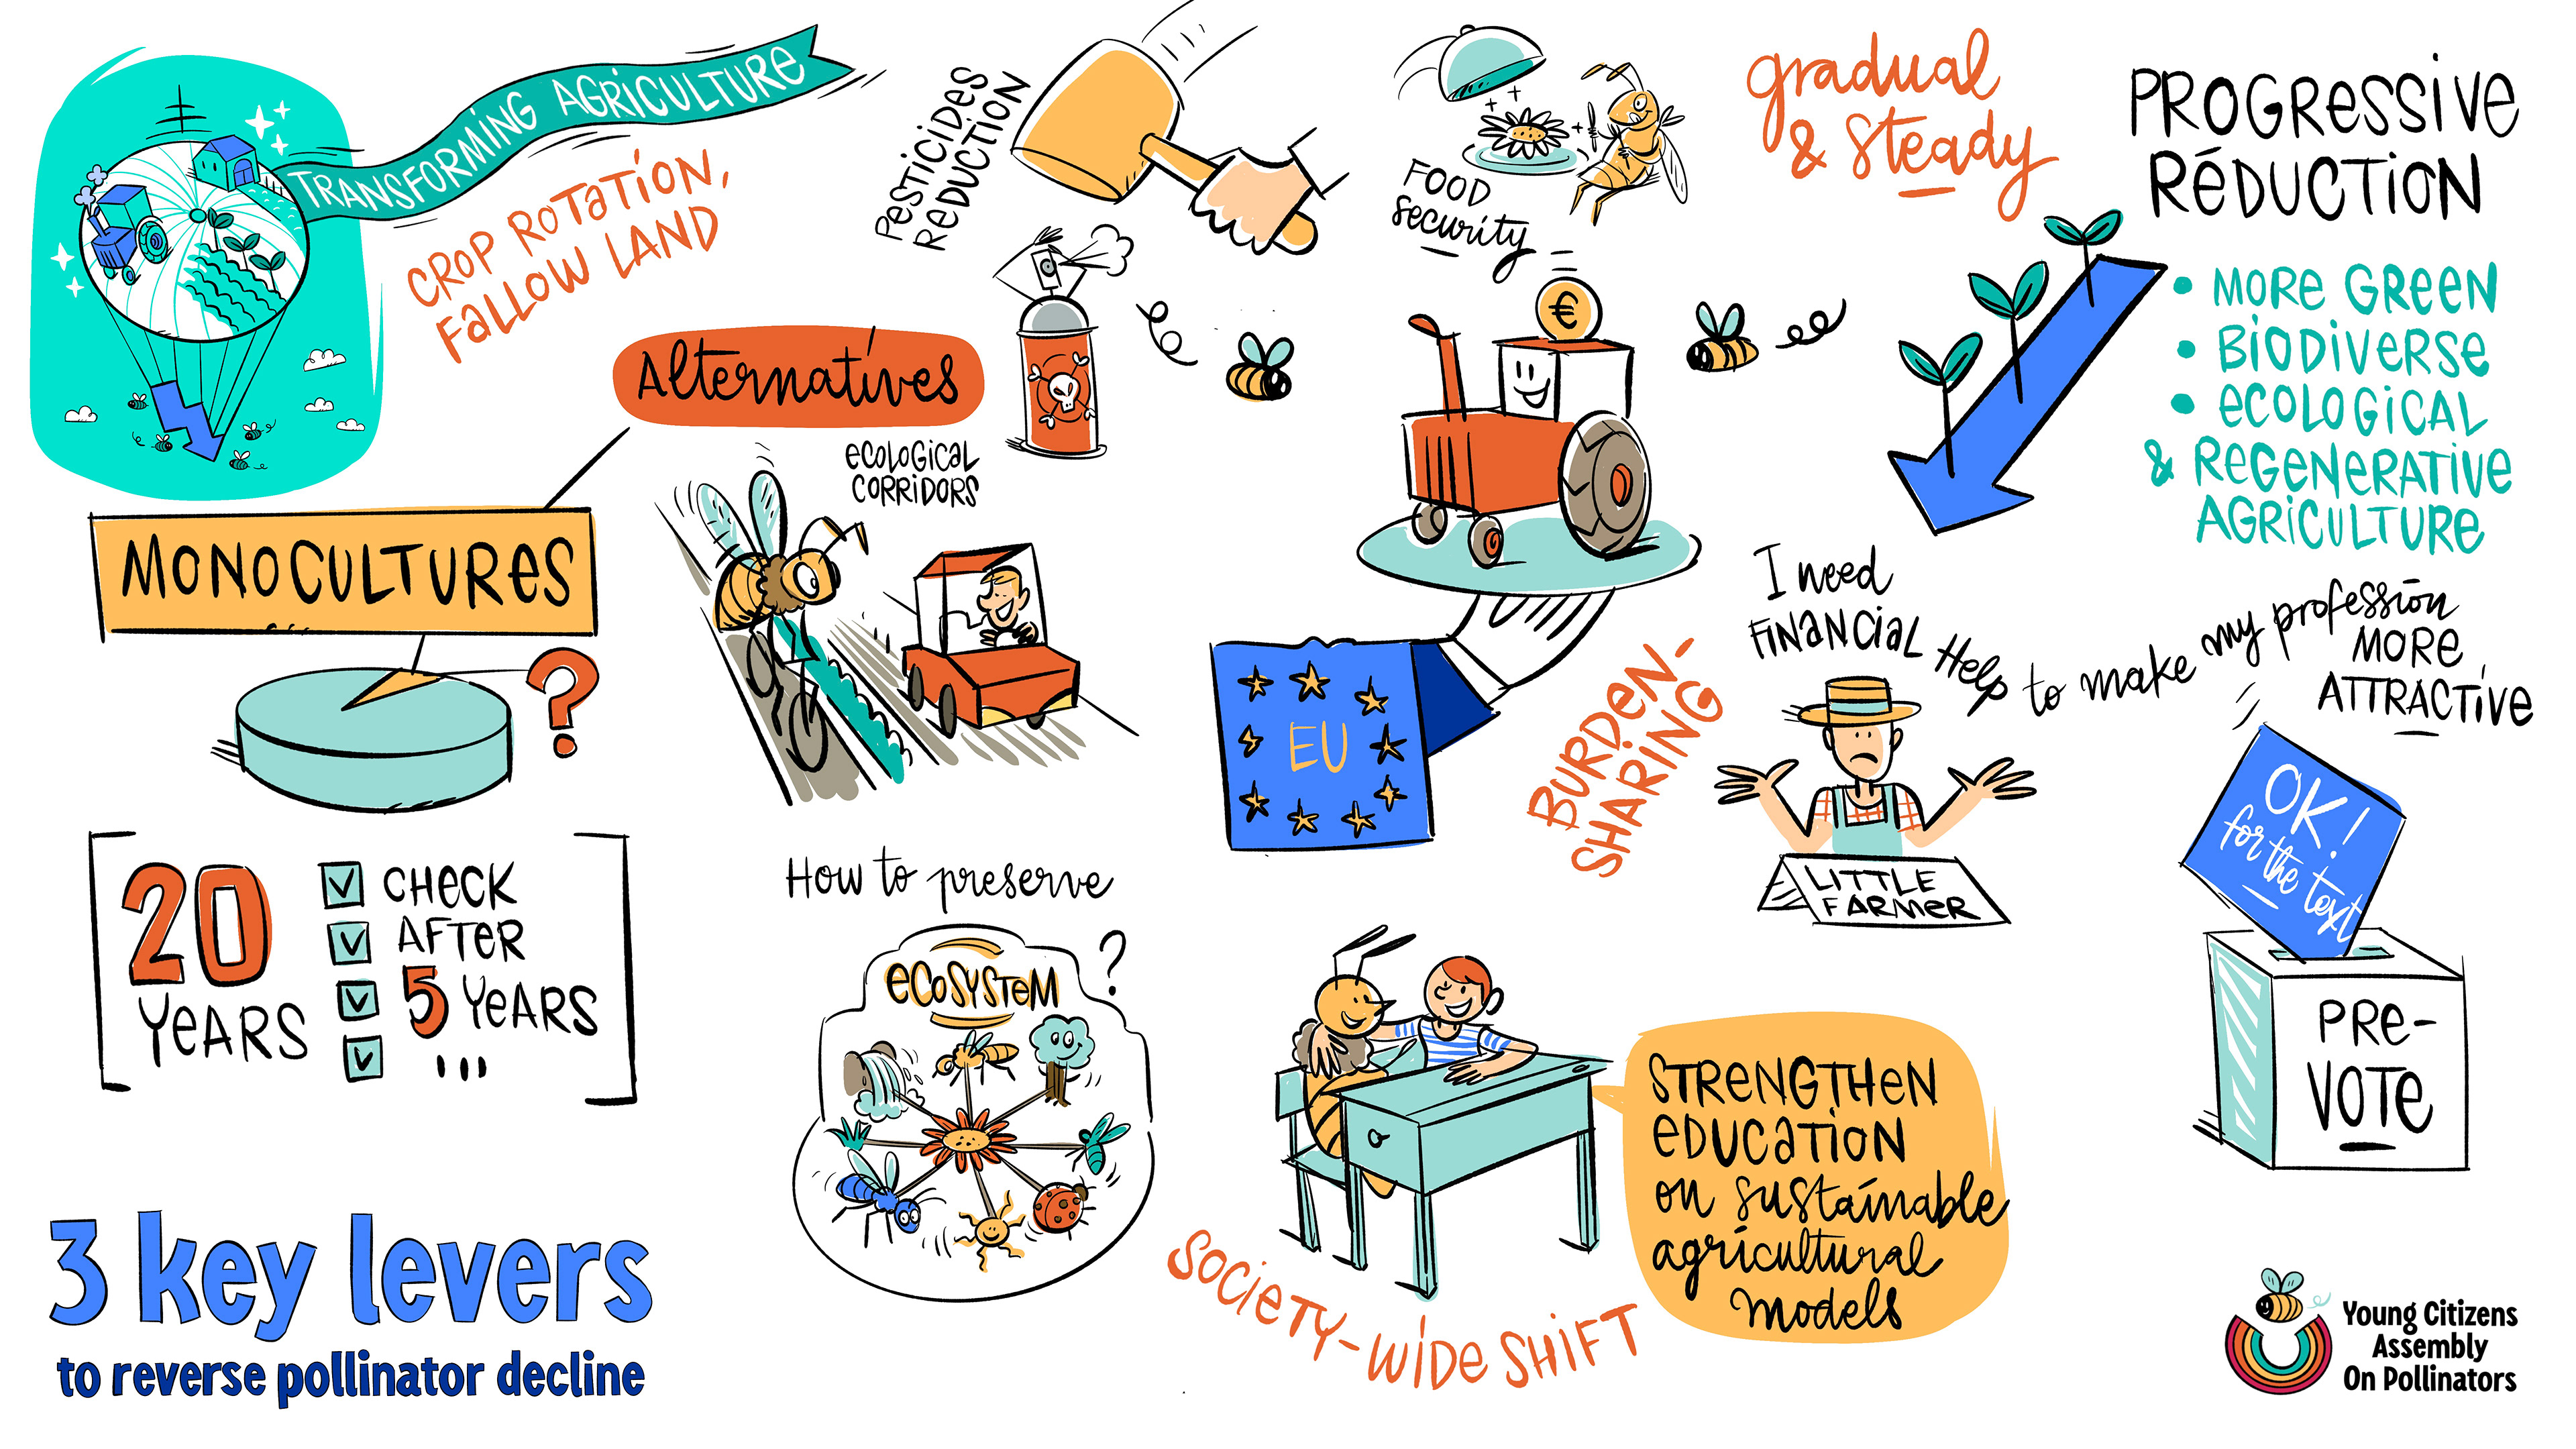 TRANSFORMING AGRICULTURE
CROP ROTATION,
FALLOW LAND
Alternatives
MONOCULTURES
?
20
YEARS
CHECK
AFTER
5 YEARS
...
3 key levers
to reverse pollinator decline
PESTICIDES
REDUCTION
ECOLOGICAL
CORRIDORS
How to preserve
ECOSYSTEM
?
FOOD
security
€
EU
BURDEN-
SHARING
SOCIETY-WIDE SHIFT
STRENGTHEN
EDUCATION
on sustainable
agricultural
models
gradual
& steady
PROGRESSIVE
RéDUCTION
• MORE GREEN
• BIODIVERSE
• ECOLOGICAL
& REGENERATIVE
AGRICULTURE
I need
FINANCIAL Help to make my profession
MORE
ATTRACTIVE
LITTLE
FARMER
OK!
for the text
PRE-
VOTE
Young Citizens
Assembly
On Pollinators